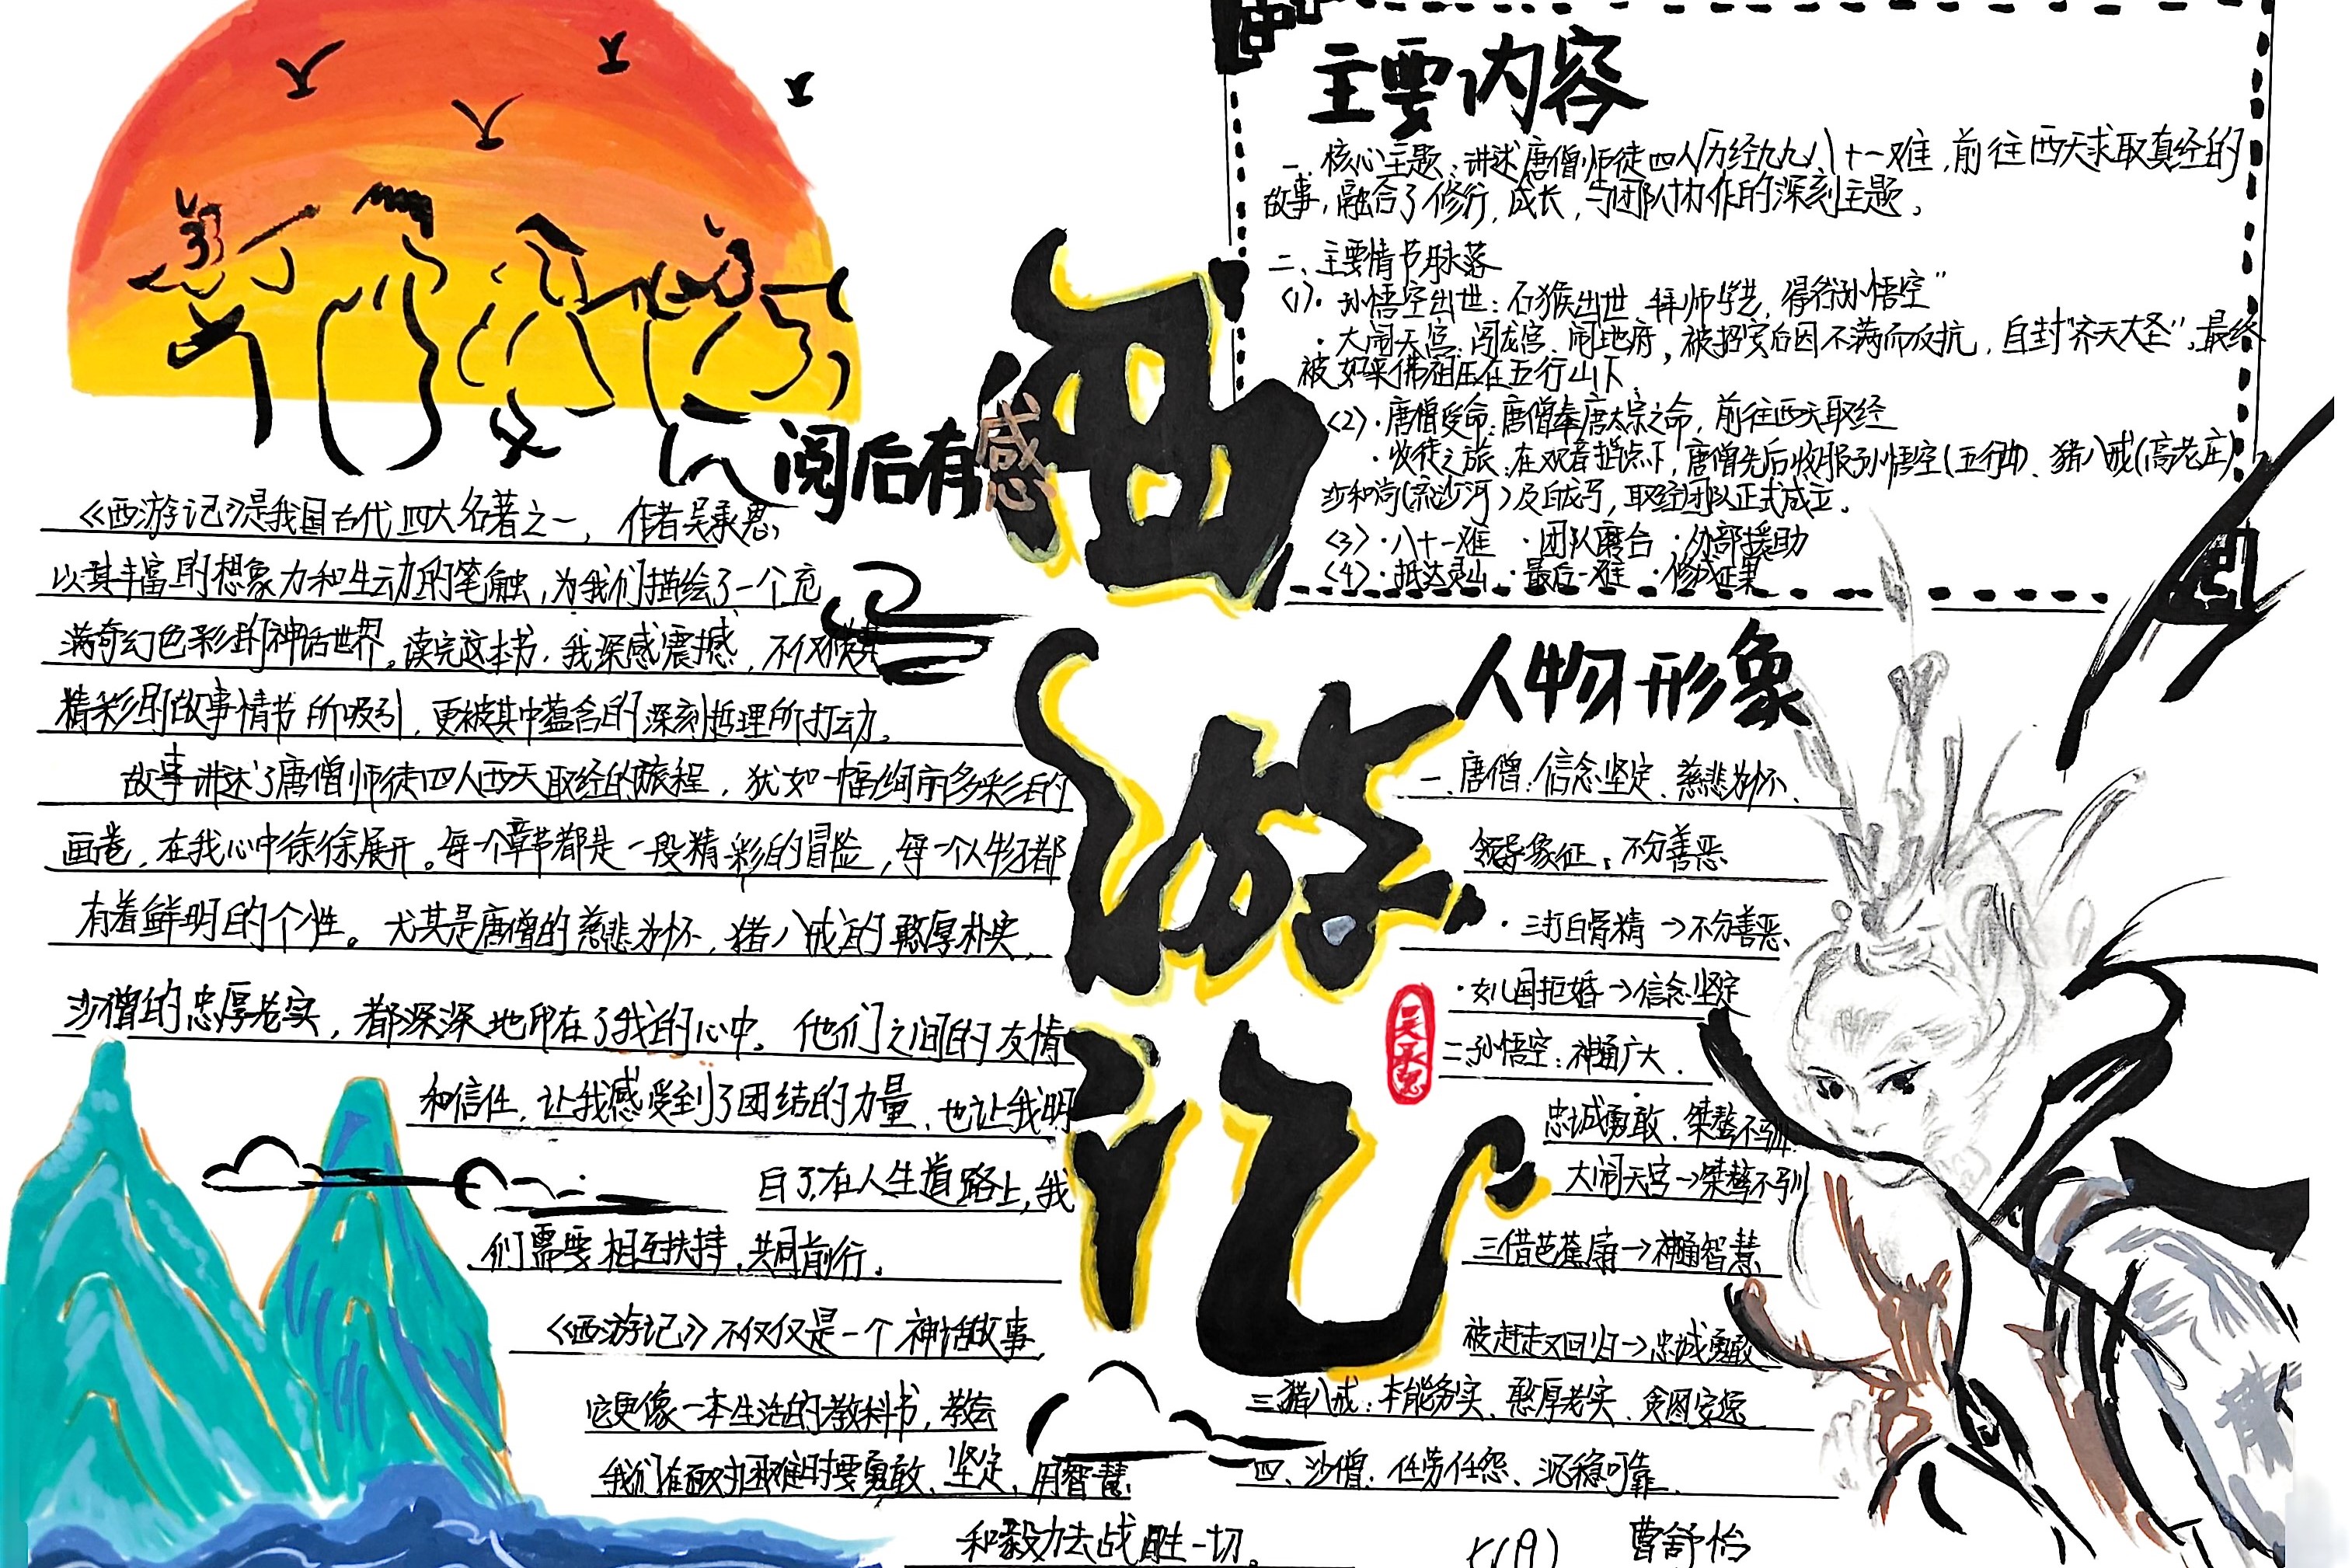 西游记
吴承恩
阅后有感
《西游记》是我国古代四大名著之一，作者吴承恩，
以其丰富的想象力和生动的笔触，为我们描绘了一个充
满奇幻色彩的神话世界。读完这本书，我深感震撼，不仅被其
精彩的故事情节所吸引，更被其中蕴含的深刻哲理所打动。
故事讲述了唐僧师徒四人西天取经的旅程，犹如一幅绚丽多彩的
画卷，在我心中徐徐展开。每个章节都是一段精彩的冒险，每一个人物都
有着鲜明的个性。尤其是唐僧的慈悲为怀，猪八戒的憨厚朴实，
沙僧的忠厚老实，都深深地印在了我的心中。他们之间的友情
和信任，让我感受到了团结的力量，也让我明
白了在人生道路上，我
们需要相互扶持，共同前行。
《西游记》不仅仅是一个神话故事
它更像一本生活的教科书，教会
我们在面对困难时要勇敢、坚定、用智慧
和毅力去战胜一切。
主要内容
一、核心主题：讲述唐僧师徒四人历经九九八十一难，前往西天求取真经的
故事，融合了修行，成长，与团队协作的深刻主题。
二、主要情节脉络
(1)·孙悟空出世：石猴出世 拜师学艺，得名孙悟空”
·大闹天宫：闯龙宫、闹地府，被招安后因不满而反抗，自封“齐天大圣”，最终
被如来佛祖压在五行山下
(2)·唐僧受命：唐僧奉唐太宗之命，前往西天取经
·收徒之旅：在观音指点下，唐僧先后收服孙悟空(五行山)、猪八戒(高老庄)
沙和尚(流沙河)及白龙马，取经团队正式成立。
(3)·八十一难 ·团队磨合 ·外部援助
(4)·抵达灵山 ·最后一难 ·修成正果
人物形象
一、唐僧：信念坚定、慈悲为怀、
领导象征、不分善恶
·三打白骨精→不分善恶、
·女儿国拒婚→信念坚定
二、孙悟空：神通广大、
忠诚勇敢、桀骜不驯
大闹天宫→桀骜不驯
三借芭蕉扇→神通智慧
被赶走又回归→忠诚勇敢
三、猪八戒：本能务实、憨厚老实、贪图安逸
四、沙僧：任劳任怨、沉稳可靠
(9) 曹舒怡